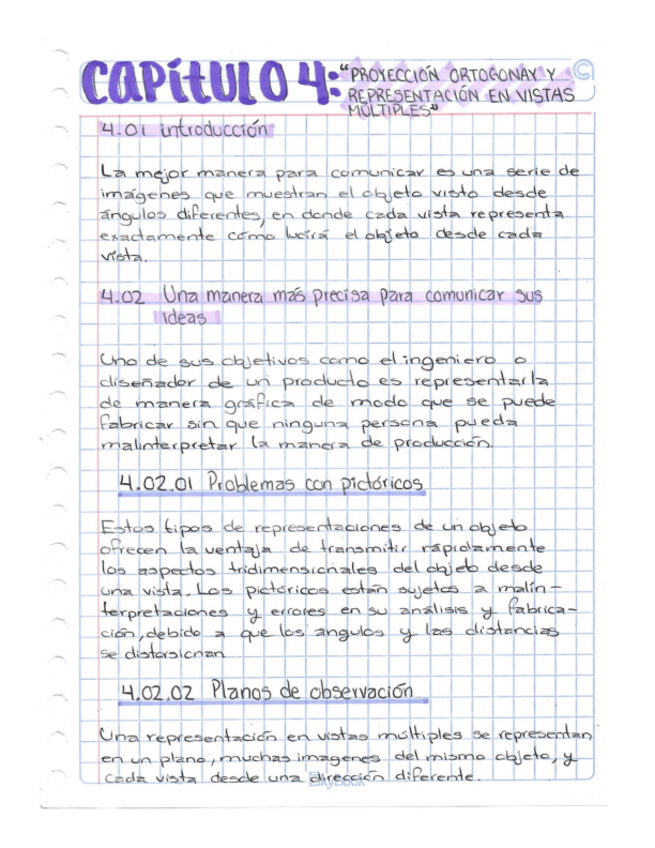 CAPÍTULO 4: "PROYECCIÓN ORTOGONAY Y
REPRESENTACIÓN EN VISTAS
MÚLTIPLES"
4.01 introducción
La mejor manera para comunicar es una serie de
imágenes que muestran el objeto visto desde
ángulos diferentes, en donde cada vista representa
exactamente cómo lucirá el objeto desde cada
vista.
4.02 Una manera más precisa para comunicar sus
ideas
Uno de sus objetivos como el ingeniero o
diseñador de un producto es representarla
de manera gráfica de modo que se puede
fabricar sin que ninguna persona pueda
malinterpretar la manera de producción.
4.02.01 Problemas con pictóricos
Estos tipos de representaciones de un objeto
ofrecen la ventaja de transmitir rápidamente
los aspectos tridimensionales del objeto desde
una vista. Los pictóricos están sujetos a malin-
terpretaciones y errores en su análisis y fabrica-
ción, debido a que los ángulos y las distancias
se distorsionan
4.02.02 Planos de observación
Una representación en vistas múltiples se representan
en un plano, muchas imagenes del mismo objeto, y
cada vista desde una dirección diferente.